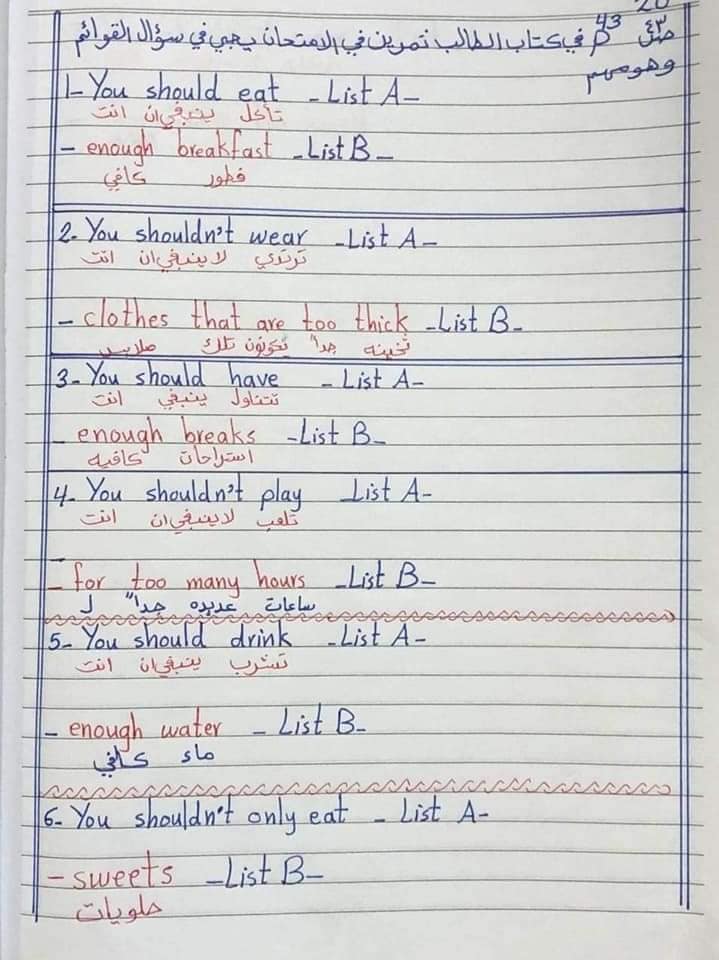 20
ص٤٣ P43 في كتاب الطالب تمرين في الامتحان يجي في سؤال القوائم
وهو مهم
1- You should eat - List A -
انت ينبغي ان تأكل
- enough breakfast - List B -
كافي فطور
2- You shouldn't wear - List A -
انت لا ينبغي ان ترتدي
- clothes that are too thick - List B -
ملابس تلك تكونون جداً ثخينه
3- You should have - List A -
انت ينبغي تتناول
- enough breaks - List B -
كافيه استراحات
4- You shouldn't play List A -
انت لا ينبغي ان تلعب
- for too many hours - List B -
لـ جداً عديده ساعات
5- You should drink - List A -
انت ينبغي ان تشرب
- enough water - List B -
كافي ماء
6- You shouldn't only eat - List A -
- sweets - List B -
حلويات